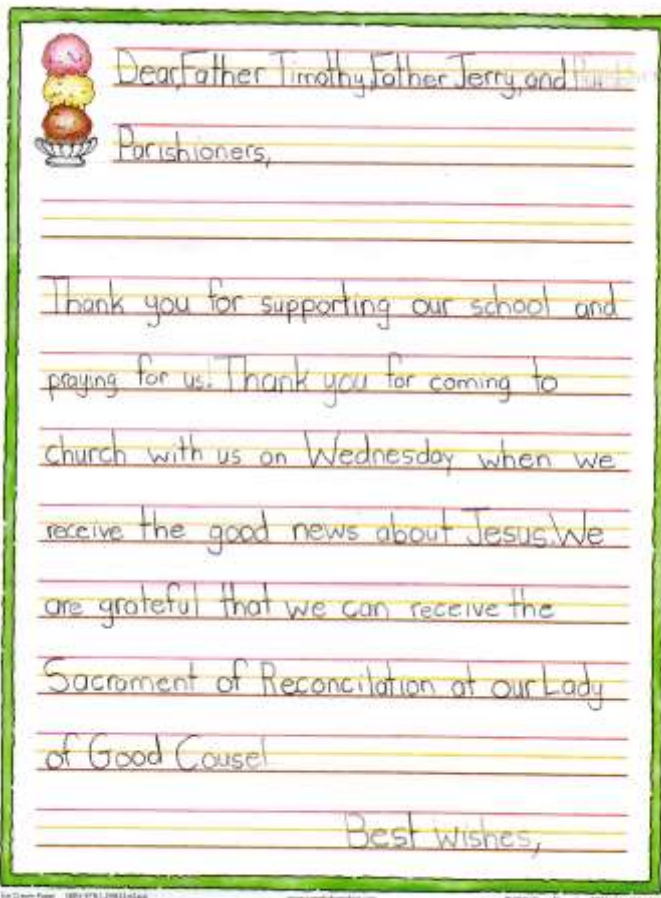 Dear,Father Timothy,Father Jerry,and
Parishioners,
Thank you for supporting our school and
praying for us! Thank you for coming to
church with us on Wednesday when we
receive the good news about Jesus.We
are grateful that we can receive the
Sacrament of Reconcilation at our Lady
of Good Cousel
Best wishes,